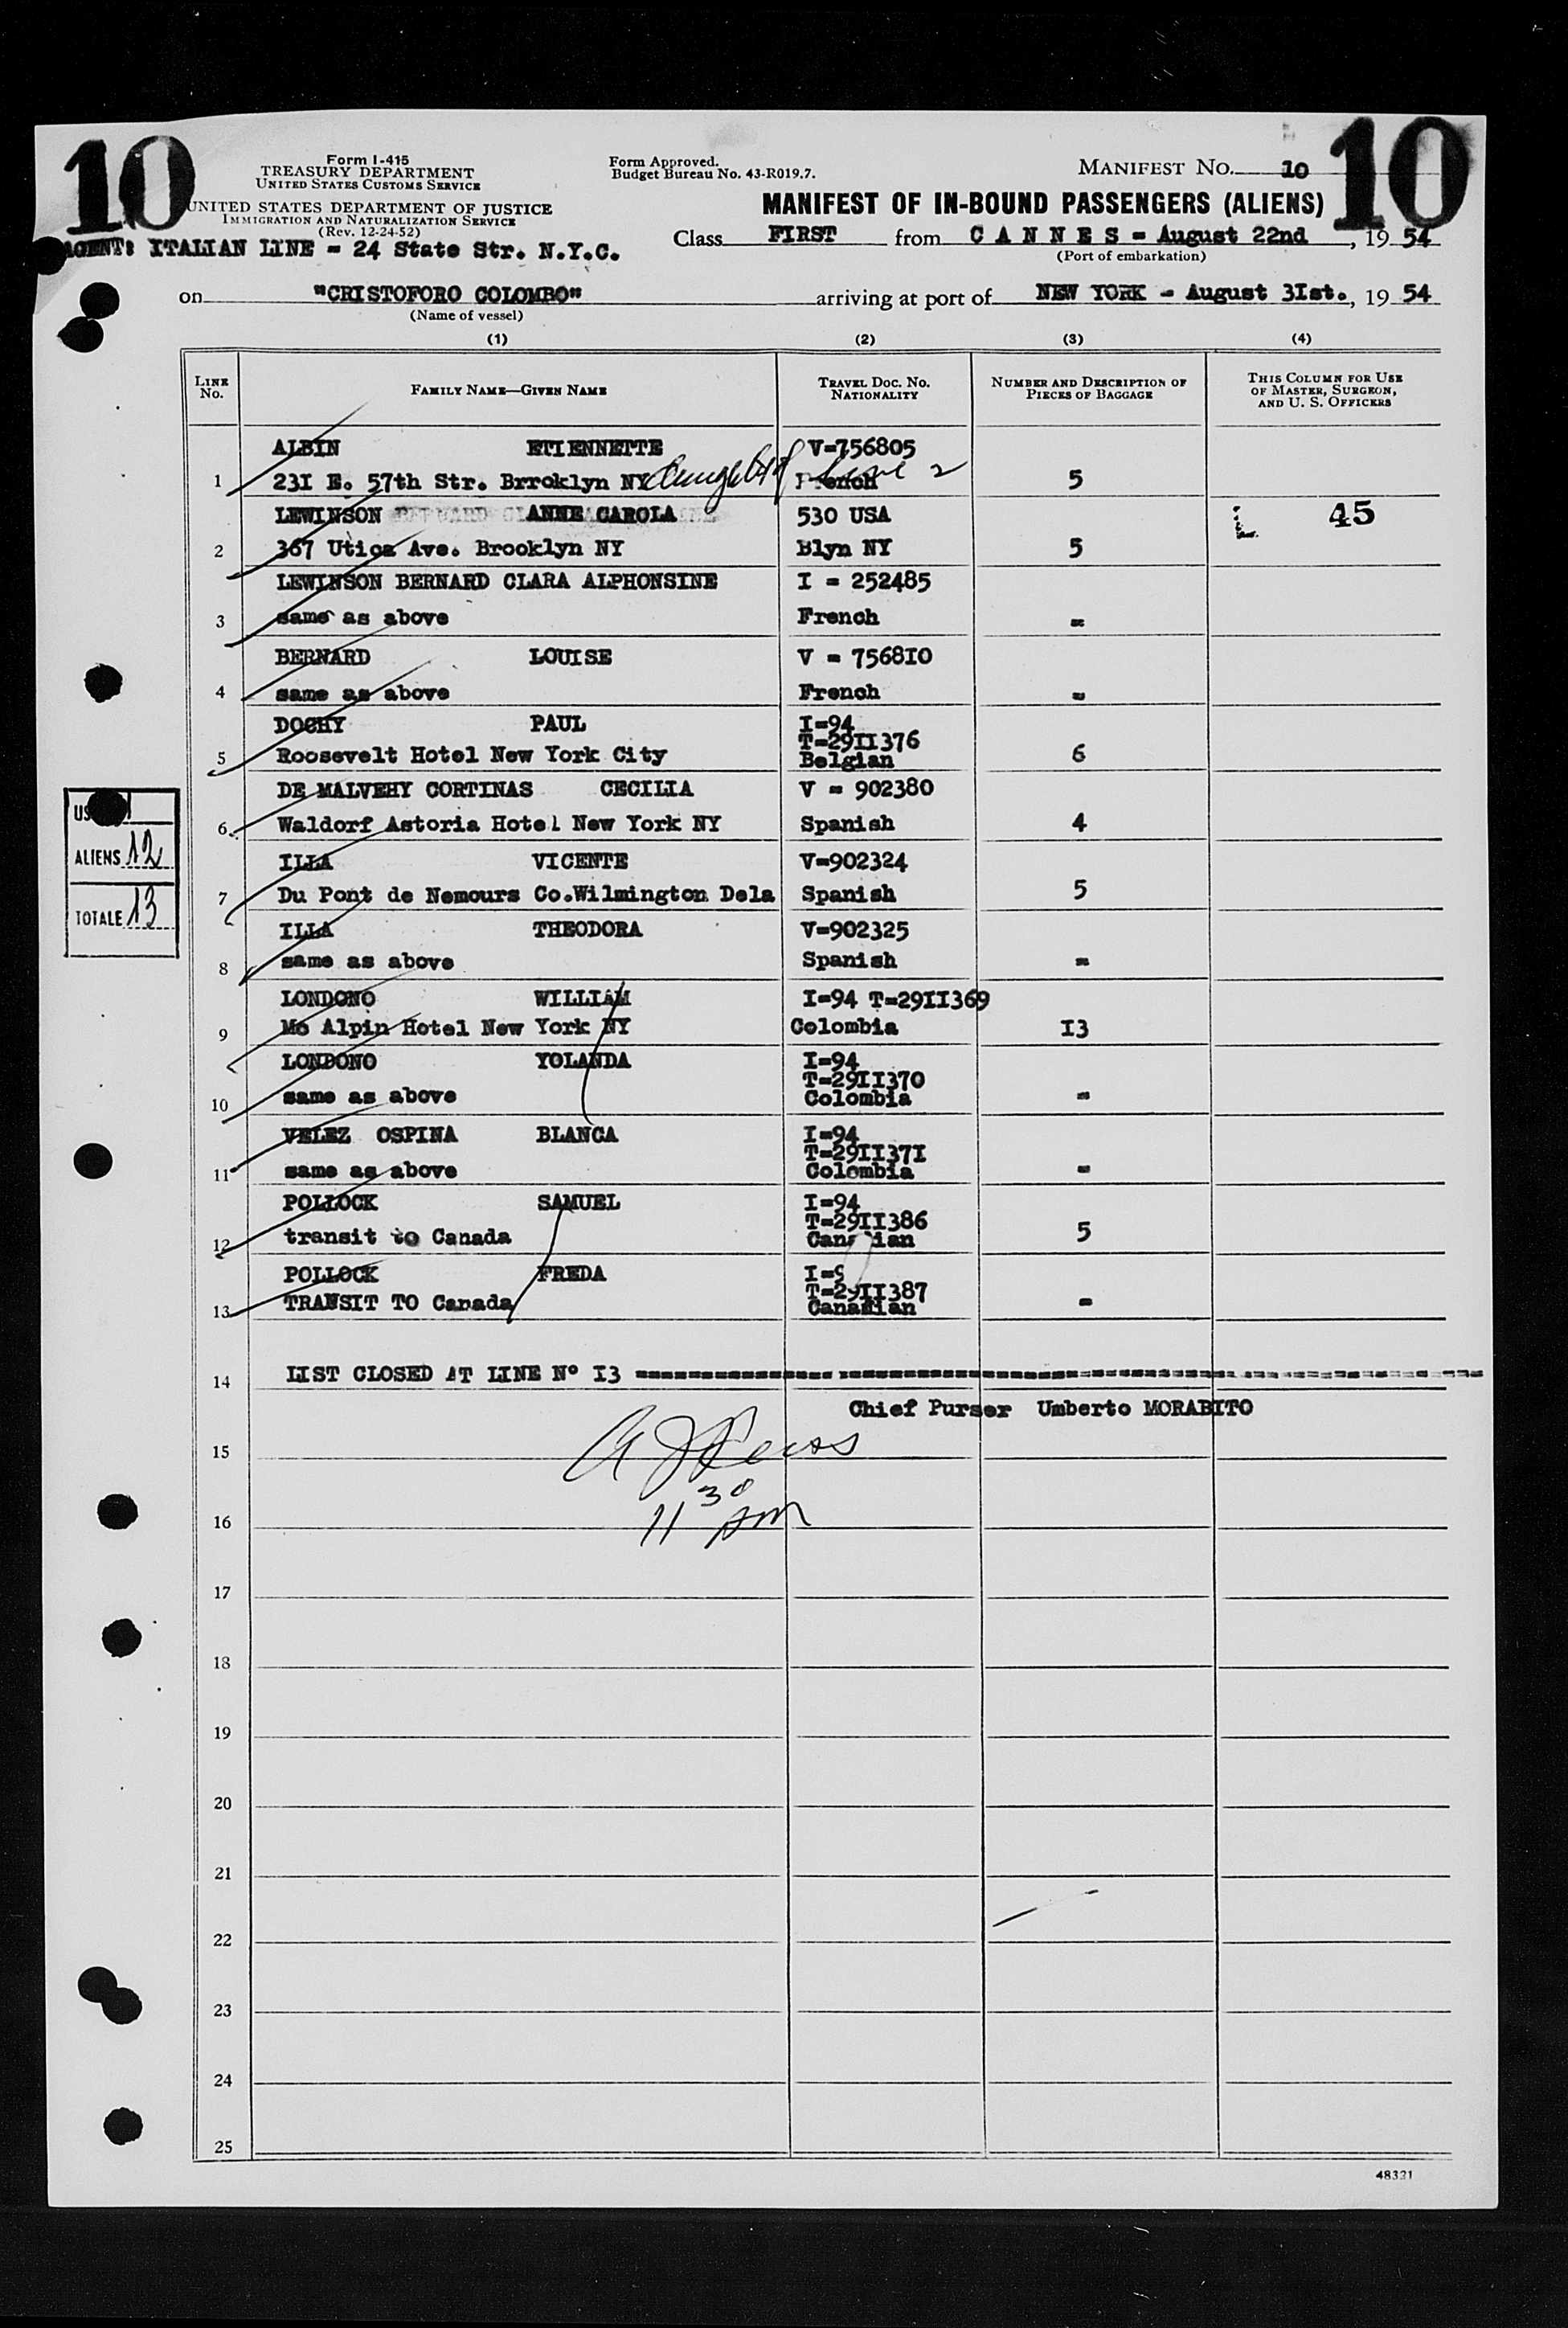 10
Form I-415
TREASURY DEPARTMENT
UNITED STATES CUSTOMS SERVICE
UNITED STATES DEPARTMENT OF JUSTICE
IMMIGRATION AND NATURALIZATION SERVICE
(Rev. 12-24-52)
AGENT: ITALIAN LINE = 24 State Str. N.Y.C.
Form Approved.
Budget Bureau No. 43-R019.7.
MANIFEST NO. 10
10
MANIFEST OF IN-BOUND PASSENGERS (ALIENS)
Class FIRST from C A N N E S = August 22nd, 19 54
(Port of embarkation)
on "CRISTOFORO COLOMBO" arriving at port of NEW YORK - August 3Ist., 19 54
(Name of vessel)
(1) (2) (3) (4)
LINE No. FAMILY NAME—GIVEN NAME TRAVEL DOC. NO. NATIONALITY NUMBER AND DESCRIPTION OF PIECES OF BAGGAGE THIS COLUMN FOR USE OF MASTER, SURGEON, AND U. S. OFFICERS
ALBIN ETIENNETTE V=756805
1 23I E. 57th Str. Brroklyn NY line 2 French 5
LEWINSON ANNE CAROLA 530 USA 45
2 367 Utica Ave. Brooklyn NY Blyn NY 5
LEWINSON BERNARD CLARA ALPHONSINE I = 252485
3 same as above French =
BERNARD LOUISE V = 7568I0
4 same as above French =
DOCHY PAUL I=94
T=29II376
5 Roosevelt Hotel New York City Belgian 6
DE MALVEHY CORTINAS CECILIA V = 902380
6 Waldorf Astoria Hotel New York NY Spanish 4
ILLA VICENTE V=902324
7 Du Pont de Nemours Co.Wilmington Dela Spanish 5
ILLA THEODORA V=902325
8 same as above Spanish =
LONDONO WILLIAM I=94 T=29II369
9 Mc Alpin Hotel New York NY Colombia I3
LONDONO YOLANDA I=94
T=29II370
10 same as above Colombia =
VELEZ OSPINA BLANCA I=94
T=29II37I
11 same as above Colombia =
POLLOCK SAMUEL I=94
T=29II386
12 transit to Canada Canadian 5
POLLOCK FREDA I=9
T=29II387
13 TRANSIT TO Canada Canadian =
US 1
ALIENS 12
TOTALE 13
14 LIST CLOSED AT LINE Nº I3
Chief Purser Umberto MORABITO
15
11 30
16 pm
17
18
19
20
21
22
23
24
25
48321